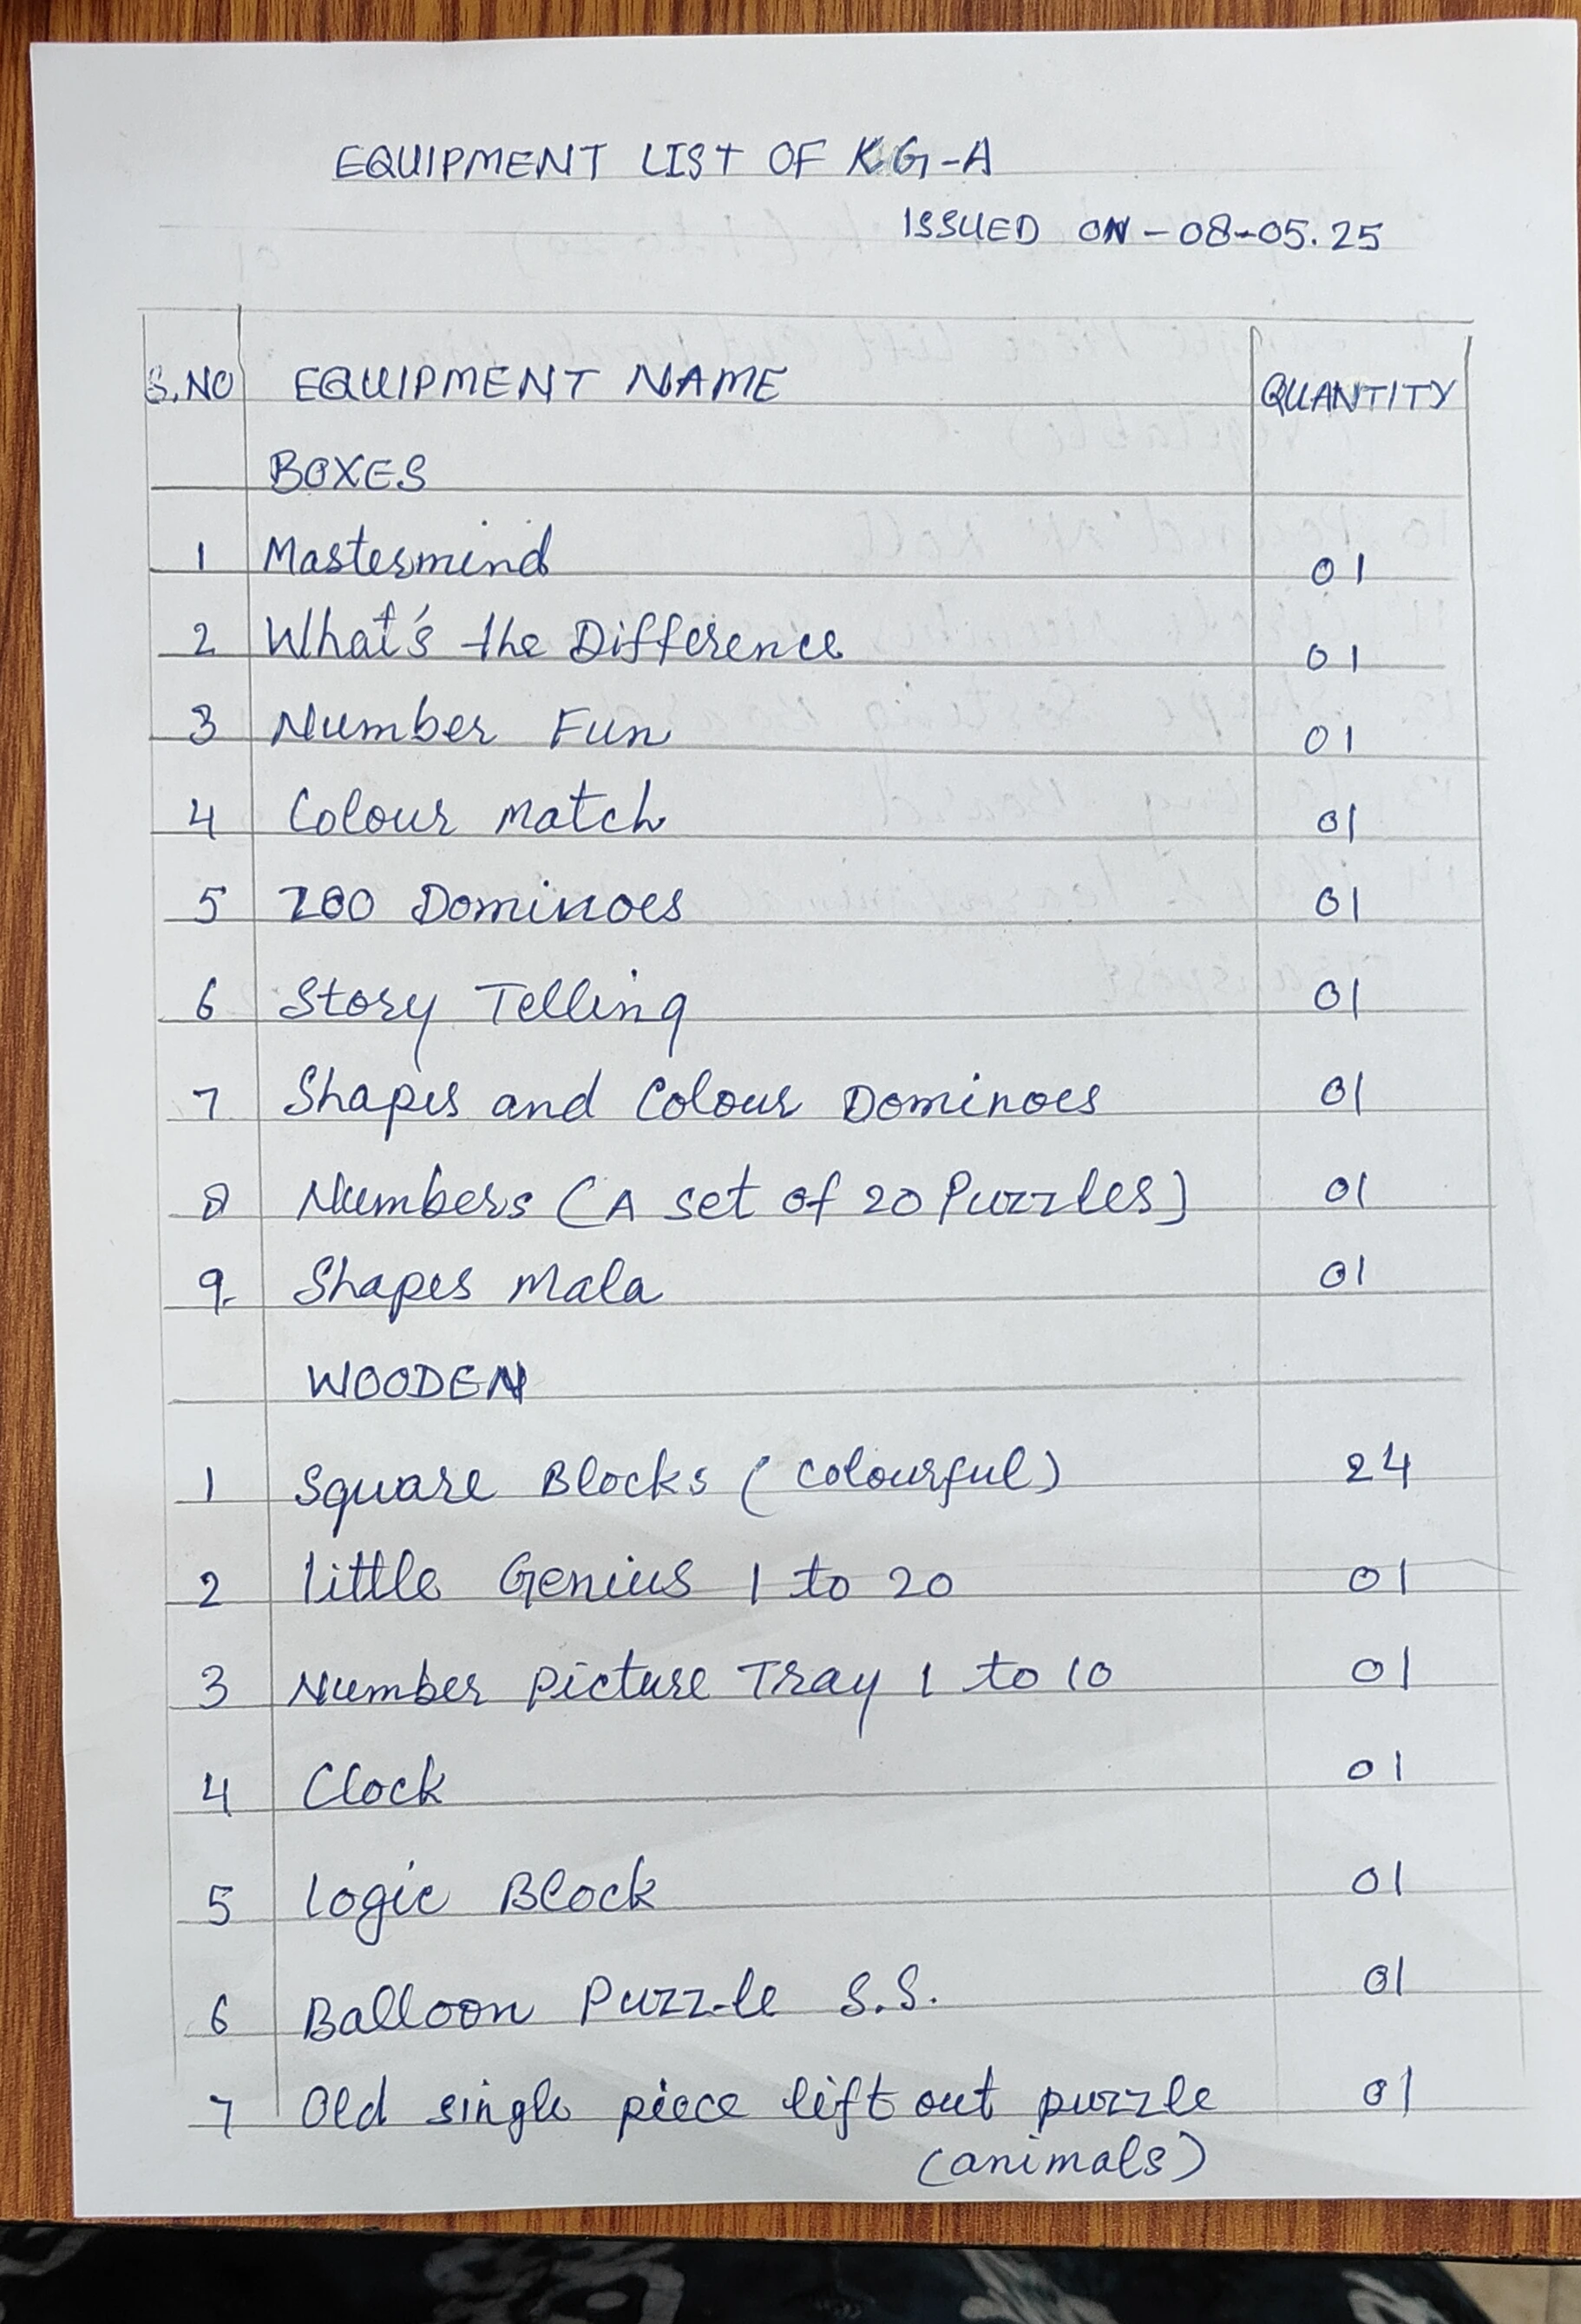 EQUIPMENT LIST OF KG-A
ISSUED ON - 08-05.25
S.NO EQUIPMENT NAME QUANTITY
BOXES
1 Mastermind 01
2 What's the Difference 01
3 Number Fun 01
4 Colour Match 01
5 ZOO Dominoes 01
6 Story Telling 01
7 Shapes and Colour Dominoes 01
8 Numbers (A set of 20 Puzzles] 01
9 Shapes Mala 01
WOODEN
1 Square Blocks (colourful) 24
2 little Genius 1 to 20 01
3 Number picture Tray 1 to 10 01
4 Clock 01
5 logic Block 01
6 Balloon Puzzle S.S. 01
7 Old single piece lift out puzzle 01
(animals)